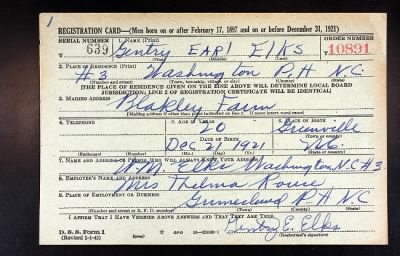 1
REGISTRATION CARD—(Men born on or after February 17, 1897 and on or before December 31, 1921)
SERIAL NUMBER 1. NAME (Print) ORDER NUMBER
639 Gentry EARl Elks 10891
(First) (Middle) (Last)
2. PLACE OF RESIDENCE (Print)
#3 Washington N.C.
(Number and street) (Town, township, village, or city) (County) (State)
[THE PLACE OF RESIDENCE GIVEN ON THE LINE ABOVE WILL DETERMINE LOCAL BOARD
JURISDICTION; LINE 2 OF REGISTRATION CERTIFICATE WILL BE IDENTICAL]
3. MAILING ADDRESS
Blakley Farm
[Mailing address if other than place indicated on line 2. If same insert word same]
4. TELEPHONE 5. AGE IN YEARS 6. PLACE OF BIRTH
20 Greenville
DATE OF BIRTH (Town or county)
Dec 21 1921 N.C.
(Exchange) (Number) (Mo.) (Day) (Yr.) (State or country)
7. NAME AND ADDRESS OF PERSON WHO WILL ALWAYS KNOW YOUR ADDRESS
Elks Washington, N.C #3
8. EMPLOYER'S NAME AND ADDRESS
Mrs Thelma Rouse
9. PLACE OF EMPLOYMENT OR BUSINESS
Grimesland N C
(Number and street or R. F. D. number) (Town) (County) (State)
I AFFIRM THAT I HAVE VERIFIED ABOVE ANSWERS AND THAT THEY ARE TRUE.
D. S. S. Form 1 Gentry E. Elks
(Revised 1-1-42) (over) GPO (Registrant's signature)